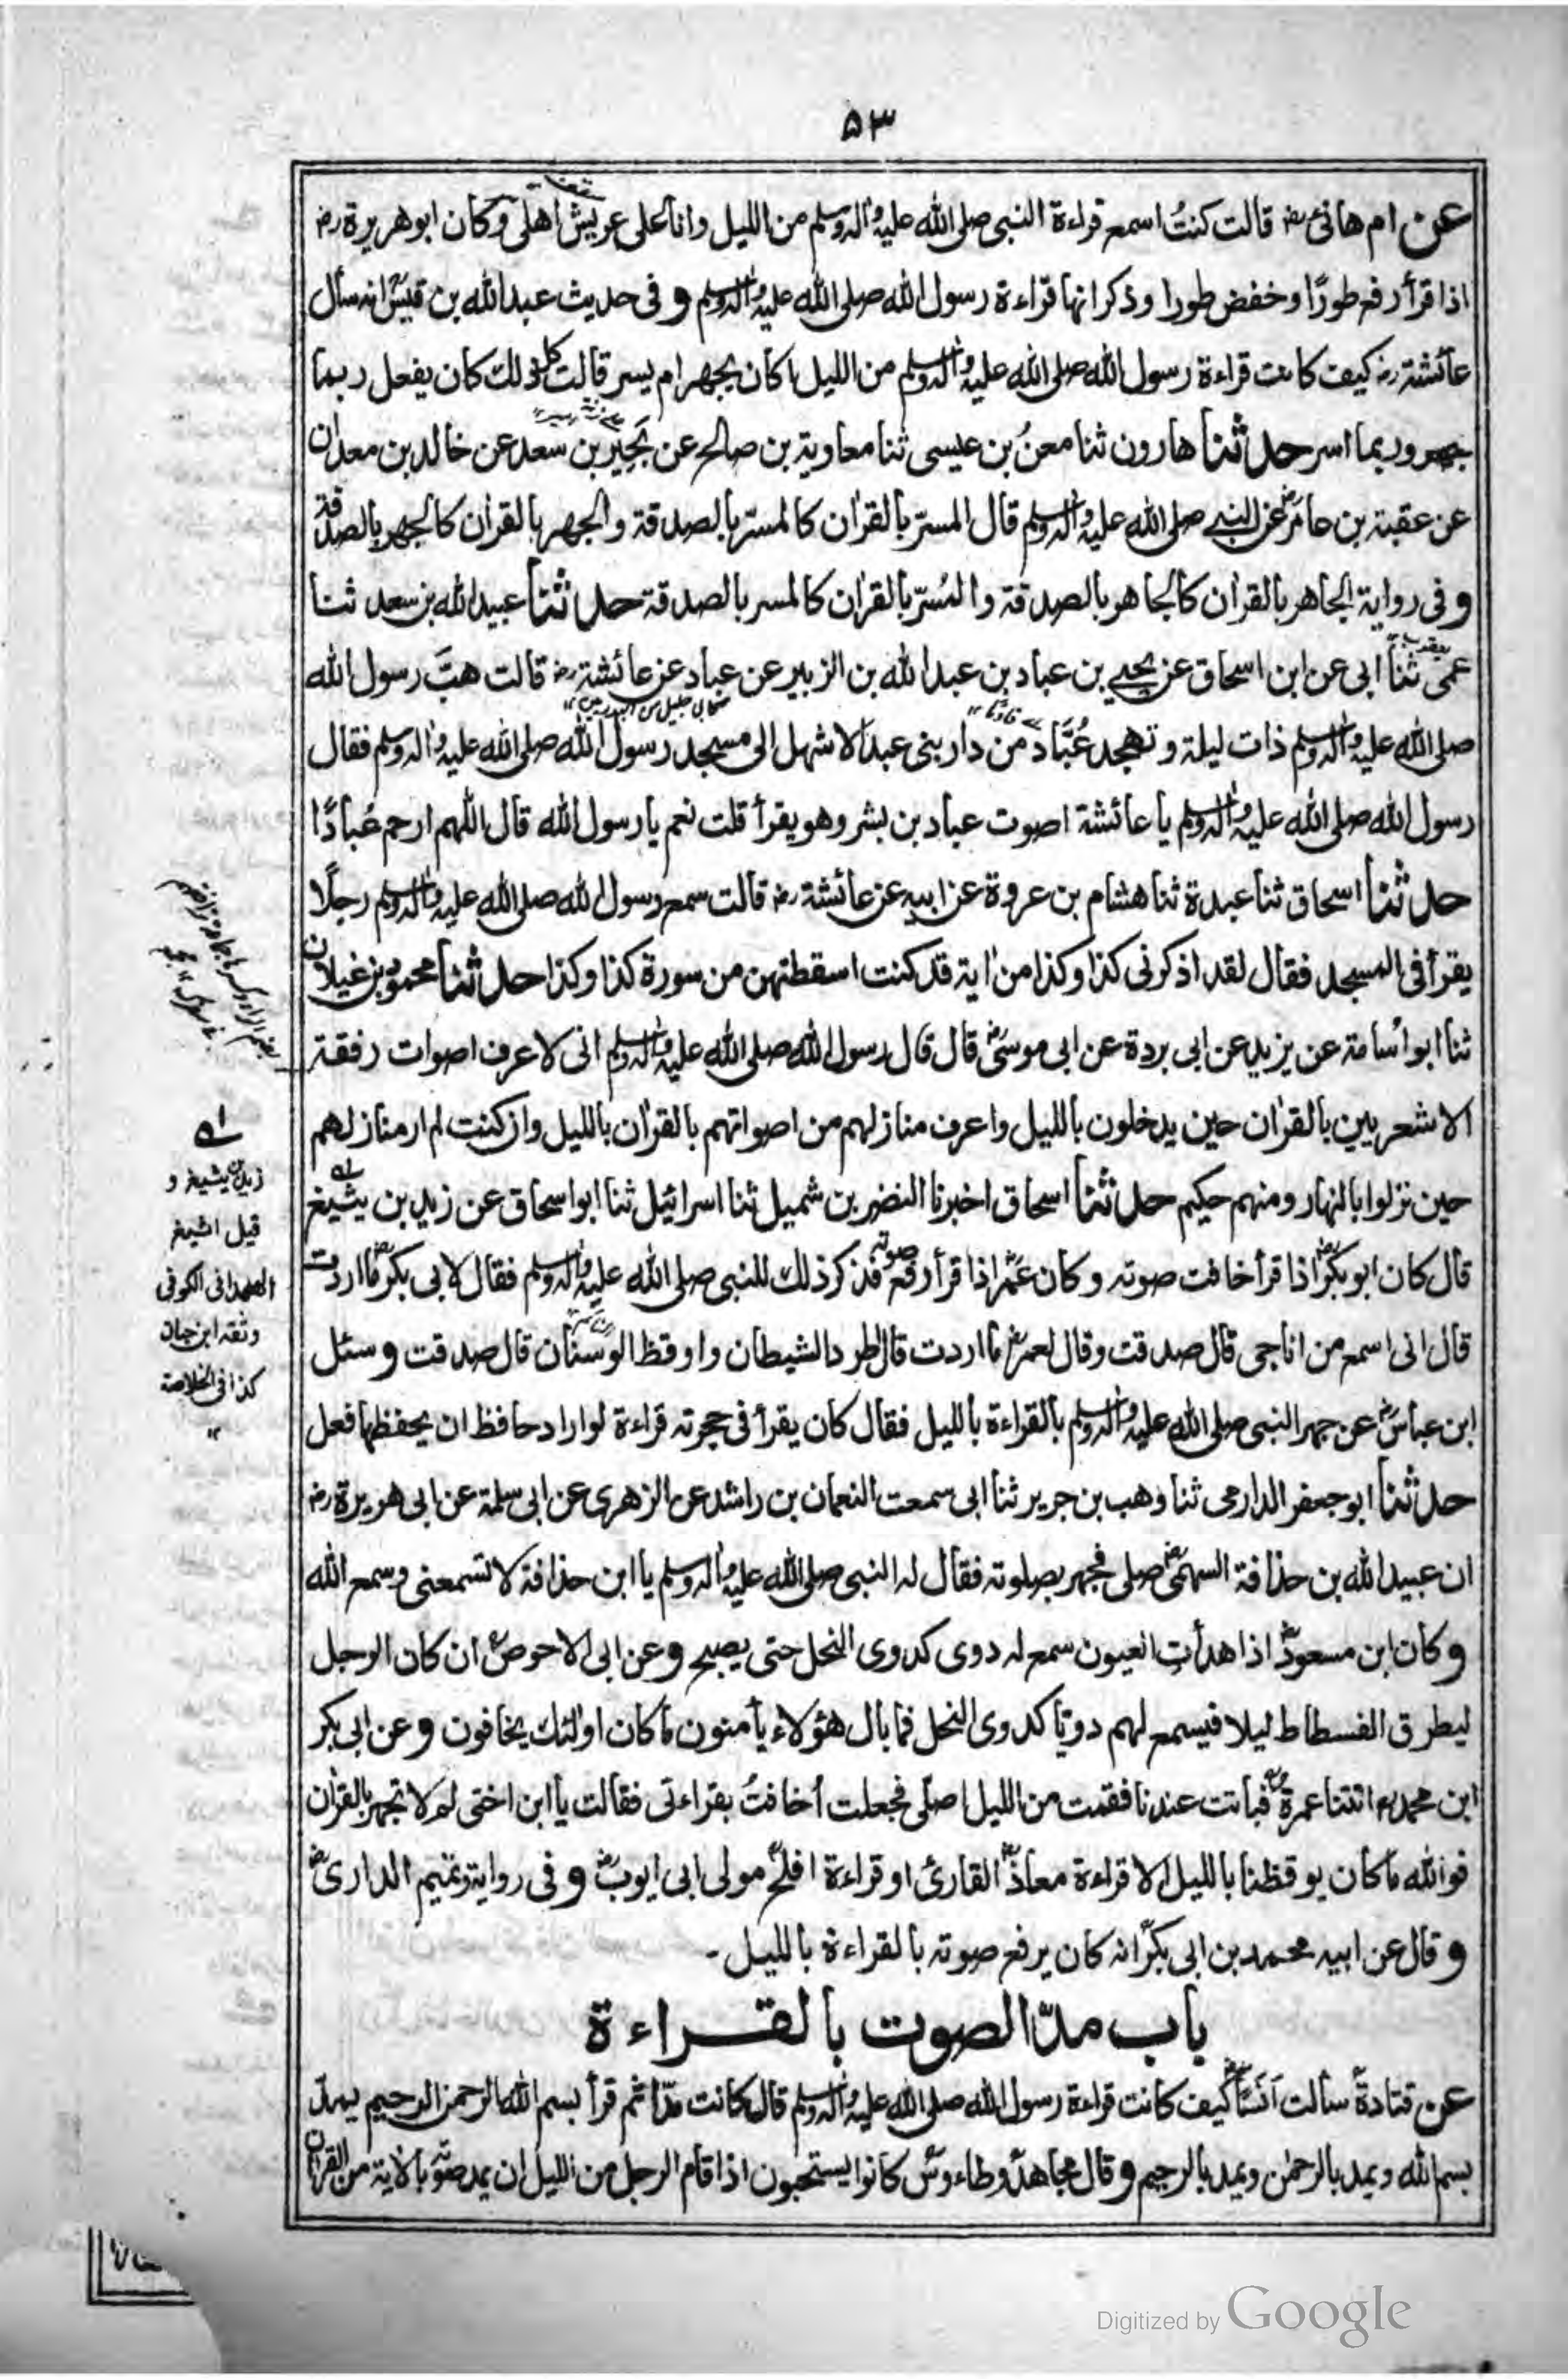 ۵۳
عن ام هانئ رضـ قالت كنتُ اسمع قراءة النبى صلى الله عليه واله وسلم من الليل وانا على عريش اهلى وكان ابو هريرة رضـ
اذا قرأ رفع طورًا وخفض طورا وذكر انها قراءة رسول الله صلى الله عليه واله وسلم و فى حديث عبد الله بن قيس انه سأل
عائشة رضـ كيف كانت قراءة رسول الله صلى الله عليه واله وسلم من الليل اكان يجهر ام يسر قالت كل ذلك كان يفعل ربما
جهر وربما اسر حدثنا هارون ثنا معن بن عيسى ثنا معاوية بن صالح عن بَحِيْر بن سعد عن خالد بن معدان
عن عقبة بن عامر عن النبى صلى الله عليه واله وسلم قال المسرّ بالقران كالمسرّ بالصدقة والجهر بالقران كالجهر بالصدقة
و فى رواية الجاهر بالقران كالجاهر بالصدقة والمُسرّ بالقران كالمسر بالصدقة حدثنا عبيد الله بن سعد ثنا
عمى ثنا ابى عن ابن اسحاق عن يحيى بن عباد بن عبد الله بن الزبير عن عباد عن عائشة رضـ قالت هبَّ رسول الله
صلى الله عليه واله وسلم ذات ليلة وتهجد عُبَّاد من دار بنى عبد الاشهل الى مسجد رسول الله صلى الله عليه واله وسلم فقال
رسول الله صلى الله عليه واله وسلم يا عائشة اصوت عباد بن بشر وهو يقرأ قلت نعم يا رسول الله قال اللهم ارحم عُبادًا
حدثنا اسحاق ثنا عبدة ثنا هشام بن عروة عن ابيه عن عائشة رضـ قالت سمع رسول الله صلى الله عليه واله وسلم رجلًا
يقرأ فى المسجد فقال لقد اذكرنى كذا وكذا من اية قد كنت اسقطتهن من سورة كذا وكذا حدثنا محمود بن غيلان
ثنا ابو اسامة عن يزيد عن ابى بردة عن ابى موسى قال قال رسول الله صلى الله عليه واله وسلم انى لاعرف اصوات رفقة
الاشعريين بالقران حين يدخلون بالليل واعرف منازلهم من اصواتهم بالقران بالليل وان كنت لم ار منازلهم
حين نزلوا بالنهار ومنهم حكيم حدثنا اسحاق اخبرنا النضر بن شميل ثنا اسرائيل ثنا ابو اسحاق عن زيد بن يشيغ
قال كان ابو بكر اذا قرأ خافت صوته وكان عمر اذا قرأ رفع صوته فذكر ذلك للنبى صلى الله عليه واله وسلم فقال لابى بكر ما اردت
قال انى اسمع من اناجى قال صدقت وقال لعمر ما اردت قال اطرد الشيطان واوقظ الوسنان قال صدقت و سئل
ابن عباس عن جهر النبى صلى الله عليه واله وسلم بالقراءة بالليل فقال كان يقرأ فى حجرته قراءة لو اراد حافظ ان يحفظها فعل
حدثنا ابو جعفر الدارمى ثنا وهب بن جرير ثنا ابى سمعت النعمان بن راشد عن الزهرى عن ابى سلمة عن ابى هريرة رضـ
ان عبيد الله بن حذافة السهمى صلى فجهر بصلوته فقال له النبى صلى الله عليه واله وسلم يا ابن حذافة لا تسمعنى وسمع الله
و كان ابن مسعود اذا هدأت العيون سمع له دوى كدوى النحل حتى يصبح و عن ابى الاحوص ان كان الرجل
ليطرق الفسطاط ليلا فيسمع لهم دويّا كدوى النحل فما بال هؤلاء يأمنون ما كان اولئك يخافون و عن ابى بكر
ابن محمد اتتنا عمرة فباتت عندنا فقمت من الليل اصلّى فجعلت أخافتُ بقراءتى فقالت يا ابن اختى لم لا تجهر بالقران
فوالله ما كان يوقظنا بالليل الا قراءة معاذ القارئ او قراءة افلح مولى ابى ايوب و فى رواية وتميم الدارى
و قال عن ابيه محمد بن ابى بكر انه كان يرفع صوته بالقراءة بالليل -
باب مدّ الصوت بالقراءة
عن قتادة سألت اَنَسًا كيف كانت قراءة رسول الله صلى الله عليه واله وسلم قال كانت مدّا ثم قرأ بسم الله الرحمن الرحيم يمدّ
بسم الله ويمد بالرحمٰن ويمد بالرحيم و قال مجاهد وطاءوس كانوا يستحبون اذا قام الرجل من الليل ان يمد صوته بالاية من القران
زيد بن يشيغ و
قيل اشيغ
الهمدانى الكوفى
وثقه ابن حبان
كذا فى الخلاصة
Digitized by Google